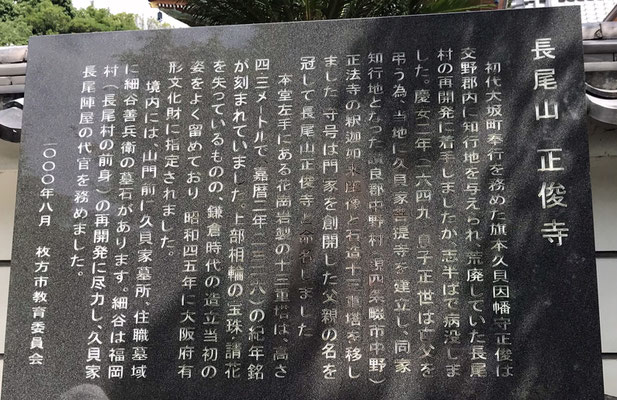 長尾山 正俊寺
初代大坂町奉行を務めた旗本久貝因幡守正俊は
交野郡内に知行地を与えられ、荒廃していた長尾
村の再開発に着手しましたが、志半ばで病没しま
した。慶安二年(一六四九)息子正世は亡父を
弔う為、当地に久貝家菩提寺を建立し、同家
知行地となった讃良郡中野村(現四条畷市中野)
正法寺の釈迦如来座像と石造十三重塔を移し
ました。寺号は門家を創開した父親の名を
冠して長尾山正俊寺と命名しました
本堂左手にある花崗岩製の十三重塔は、高さ
四・三メートルで、嘉暦二年(一三二八)の紀年銘
が刻まれていました。上部相輪の宝珠・請花
を失っているものの、鎌倉時代の造立当初の
姿をよく留めており、昭和四五年に大阪府有
形文化財に指定されました。
境内には、山門前に久貝家墓所、住職墓域
に細谷善兵衛の墓石があります。細谷は福岡
村(長尾村の前身)の再開発に尽力し、久貝家
長尾陣屋の代官を務めました。
二〇〇〇年八月 枚方市教育委員会